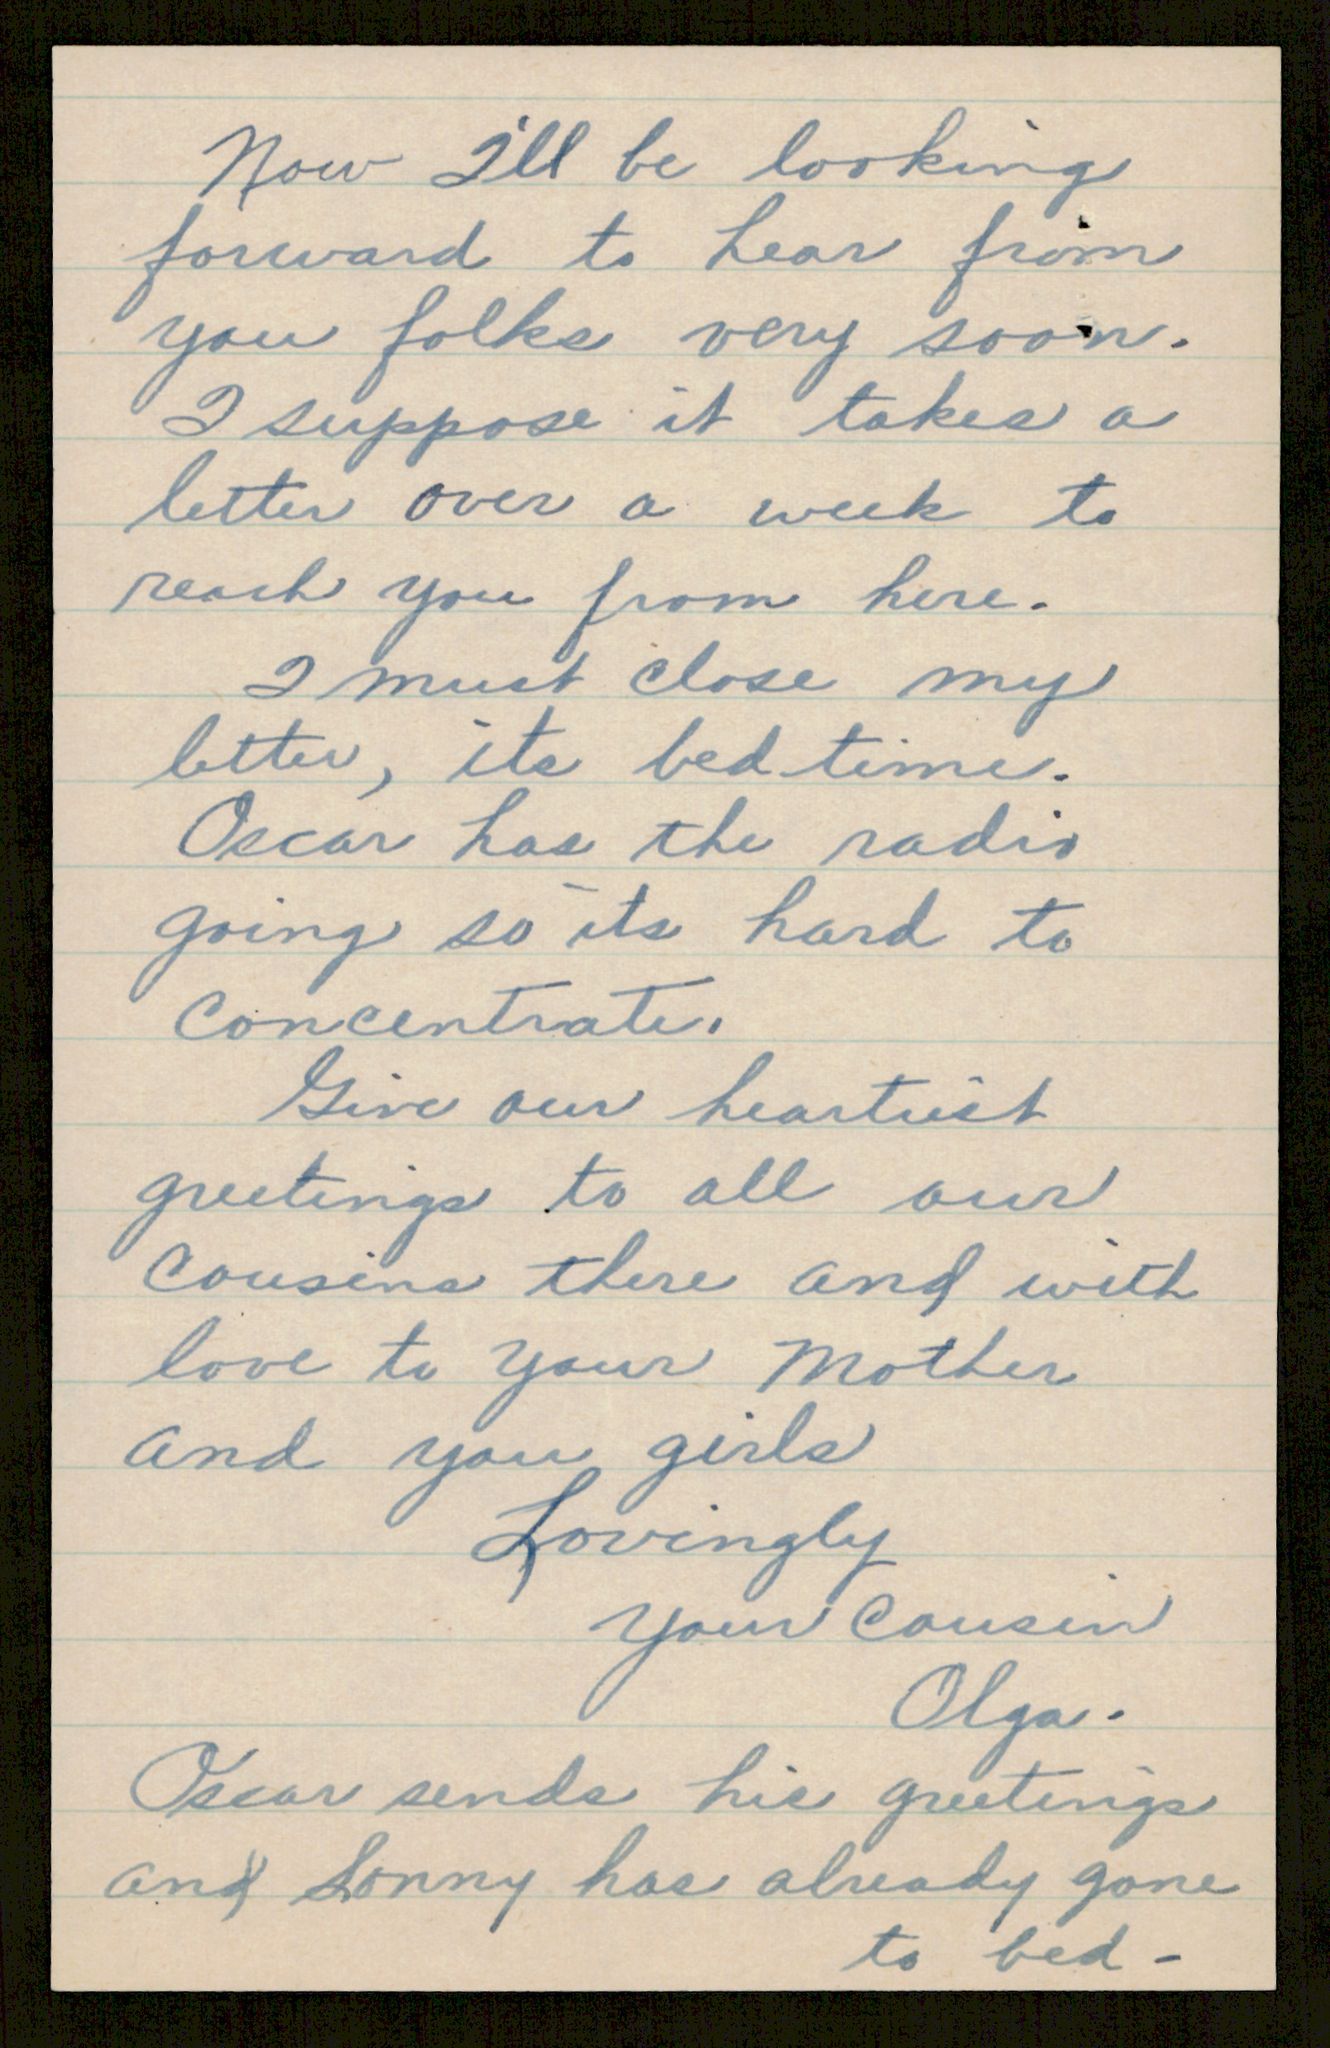 Now I'll be looking
forward to hear from
you folks very soon.
I suppose it takes a
letter over a week to
reach you from here.
I must close my
letter, its bed time.
Oscar has the radio
going so its hard to
concentrate.
Give our heartiest
greetings to all our
cousins there and with
love to your Mother
and you girls
Lovingly
your cousin
Olga.
Oscar sends his greetings
and Sonny has already gone
to bed -